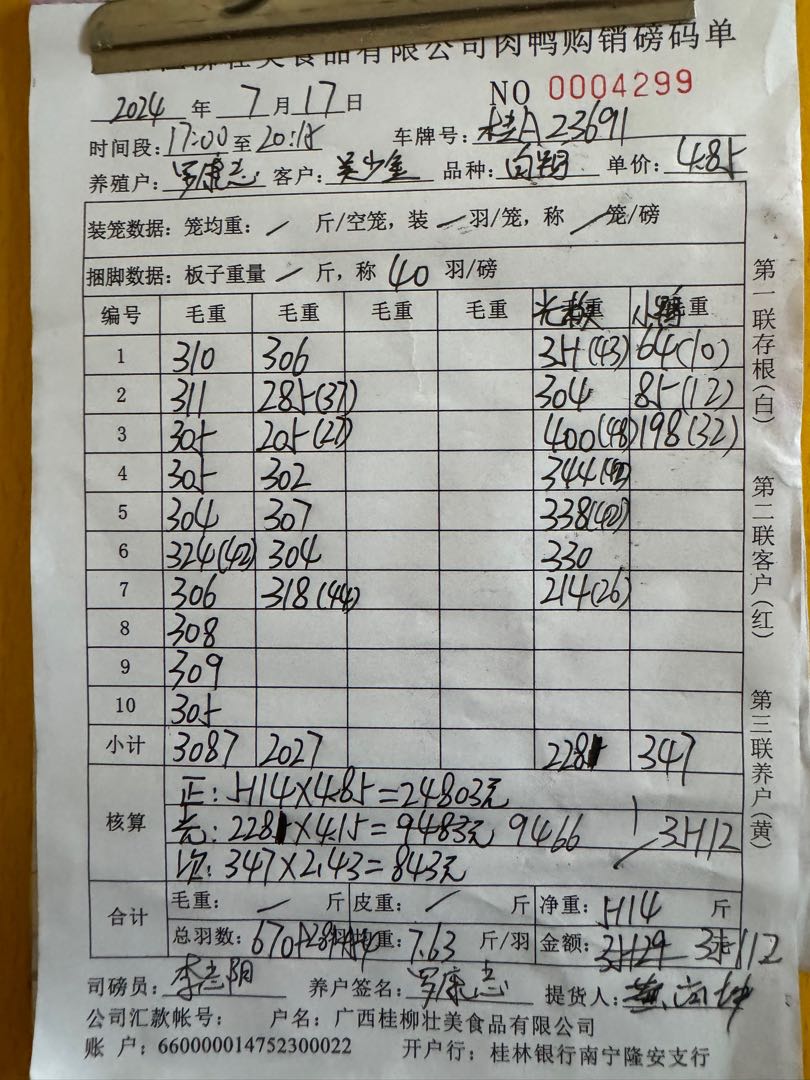 壮美食品有限公司肉鸭购销磅码单
NO 0004299
2024 年 7 月 17 日
时间段: 17:00 至 20:15 车牌号: 桂A23691
养殖户: 罗康志 客户: 吴少金 品种: 白鸭 单价: 4.85
装笼数据: 笼均重: / 斤/空笼, 装 / 羽/笼, 称 / 笼/磅
捆脚数据: 板子重量 / 斤, 称 40 羽/磅
编号 毛重 毛重 毛重 毛重 毛重 毛重
1 310 306 351(43) 64(10)
2 311 285(37) 304 85(12)
3 305 205(27) 400(48) 198(32)
4 305 302 344(42)
5 304 307 338(42)
6 324(42) 304 330
7 306 318(44) 214(26)
8 308
9 309
10 305
小计 3087 2027 2281 347
核算
正: 5114×4.85=24803元
光: 2281×4.15=9483元 9466
次: 347×2.43=843元
35112
合计
毛重: / 斤 皮重: / 斤 净重: 5114 斤
总羽数: 670 均重: 7.63 斤/羽 金额: 35129 35112
司磅员: 李志阳 养户签名: 罗康志 提货人:
公司汇款帐号: 户名: 广西桂柳壮美食品有限公司
账 户: 660000014752300022 开户行: 桂林银行南宁隆安支行
第一联存根(白)
第二联客户(红)
第三联养户(黄)